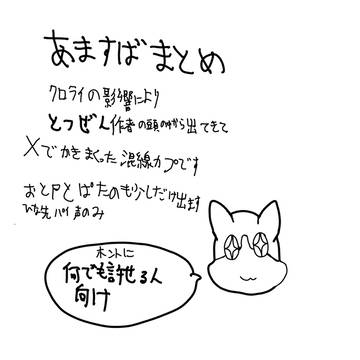 あますばまとめ
クロライの影響により
とつぜん作者の頭の中から出てきて
Xでかきまくった混線カプです
おとPとばたのも少しだけ出ます
ひな先パイ声のみ
ホントに
何でも許せる人
向け